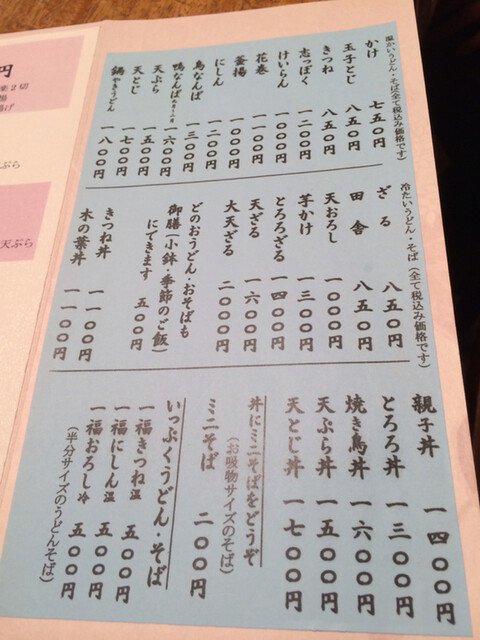 温かいうどん・そば(全て税込み価格です)
かけ 七五〇円
玉子とじ 八五〇円
きつね 八五〇円
志っぽく 一二〇〇円
けいらん 一〇〇〇円
花巻 一一〇〇円
釜揚 一〇〇〇円
にしん 一二〇〇円
鳥なんば 一三〇〇円
鴨なんば 一六〇〇円
天ぷら 一五〇〇円
天とじ 一七〇〇円
鍋やきうどん 一八〇〇円
冷たいうどん・そば(全て税込み価格です)
ざる 八五〇円
田舎 八五〇円
天おろし 一〇〇〇円
芋かけ 一三〇〇円
とろろざる 一四〇〇円
天ざる 一六〇〇円
大天ざる 二〇〇〇円
どのおうどん・おそばも
御膳(小鉢・季節のご飯)
にできます 五〇〇円
きつね丼 一〇〇〇円
木の葉丼 一一〇〇円
親子丼 一四〇〇円
とろろ丼 一三〇〇円
焼き鳥丼 一六〇〇円
天ぷら丼 一五〇〇円
天とじ丼 一七〇〇円
丼にミニそばをどうぞ
(お吸物サイズのそば)
ミニそば 二〇〇円
いっぷくうどん・そば
一福きつね温 五〇〇円
一福にしん温 五〇〇円
一福おろし冷 五〇〇円
(半分サイズのうどんそば)
円
天ぷら